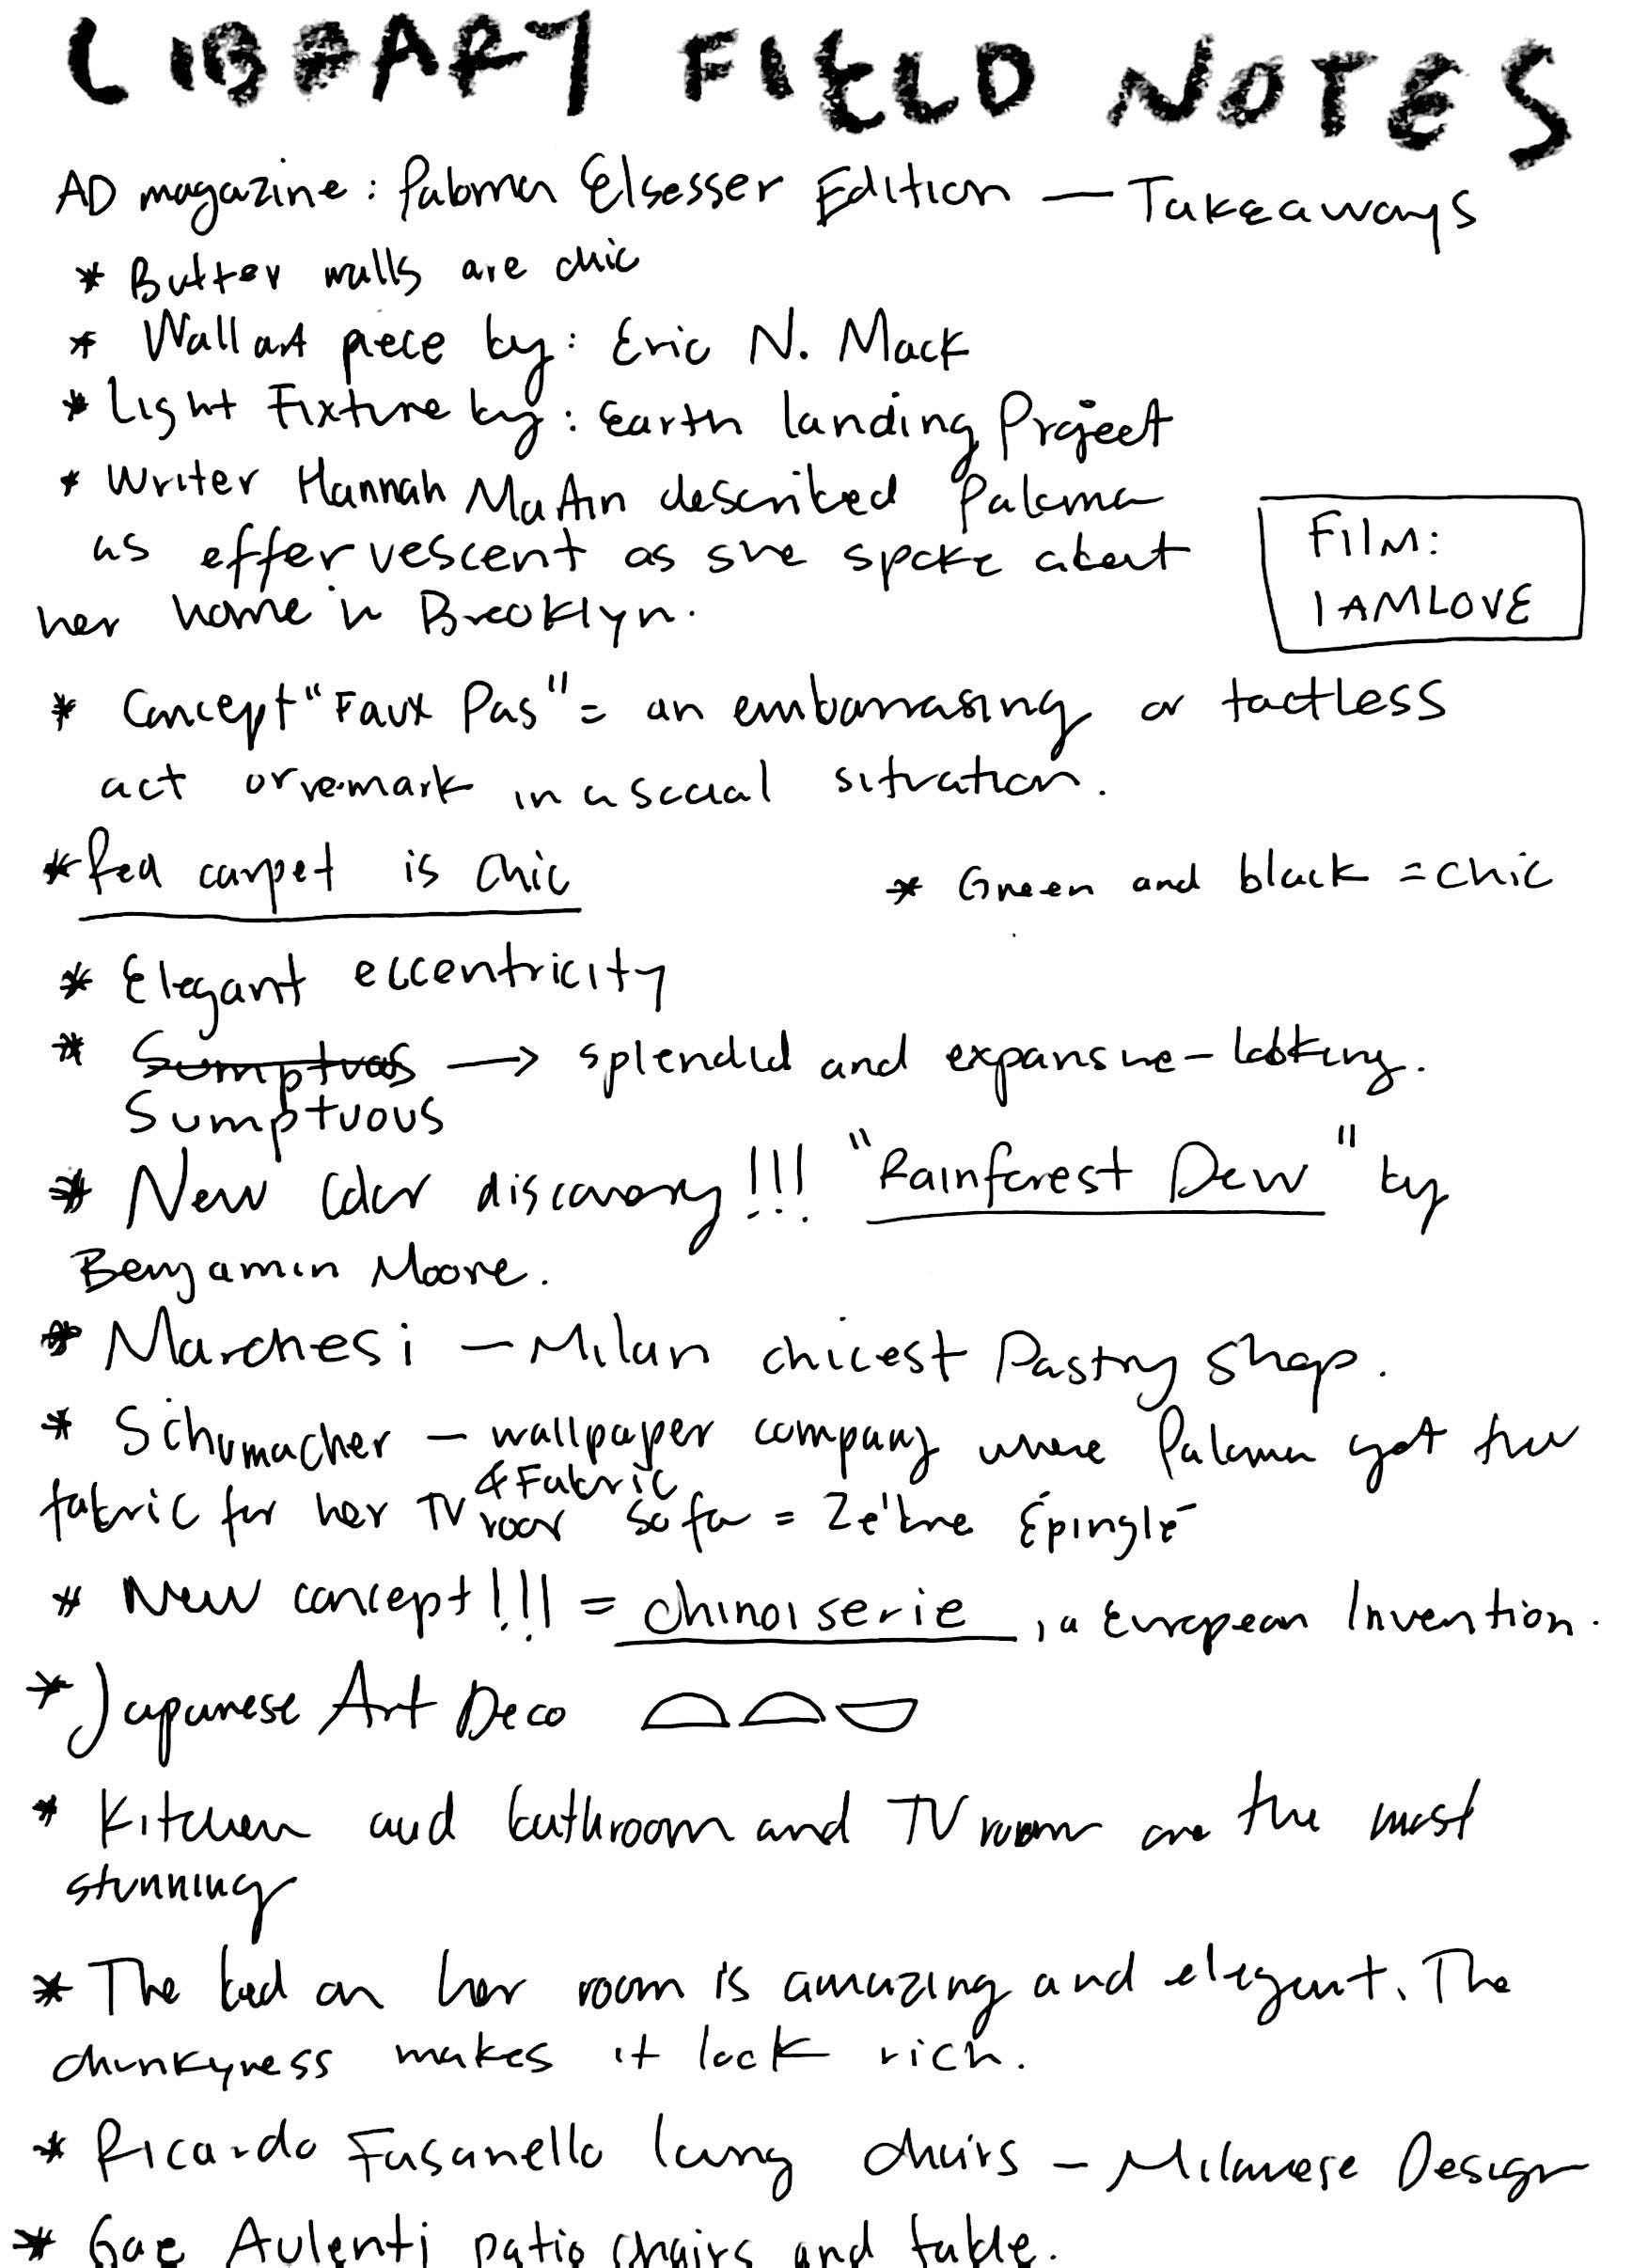 LIBRARY FIELD NOTES
AD magazine: Paloma Elsesser Edition — Takeaways
* Butter walls are chic
* Wall art piece by: Eric N. Mack
* Light Fixture by: Earth landing Project
* Writer Hannah Martin described Paloma
as effervescent as she spoke about
her home in Brooklyn.
FILM:
I AM LOVE
* Concept "Faux Pas" = an embarrasing or tactless
act or remark in a social situation.
* Red carpet is chic
* Green and black = chic
* Elegant eccentricity
* Sumptuos → splendid and expansive-looking.
Sumptuous
* New Color discovery!!! "Rainforest Dew" by
Benjamin Moore.
* Marchesi — Milan chicest Pastry Shop.
* Schumacher — wallpaper company where Paloma got the
& Fabric
fabric for her TV room sofa = Zébre Épinglé
* New concept!!! = chinoiserie, a European Invention.
* Japanese Art Deco
* Kitchen and bathroom and TV room are the most
stunning
* The bed on her room is amazing and elegant. The
chunkyness makes it look rich.
* Ricardo Fasanello lung chairs — Milanese Design
* Gae Aulenti patio chairs and table.